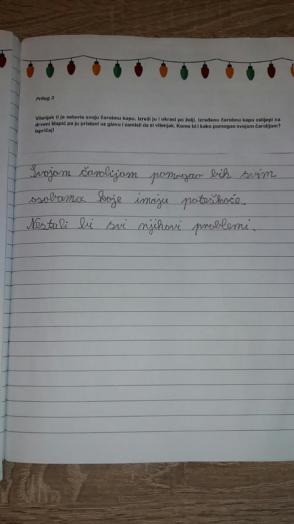 Prilog 3
Vilenjak ti je ostavio svoju čarobnu kapu. Izreži ju i ukrasi po želji. Izrađenu čarobnu kapu zalijepi na
drveni štapić pa ju prisloni uz glavu i zamisli da si vilenjak. Kome bi i kako pomogao svojom čarolijom?
Ispričaj!
Svojom čarolijom pomogao bih svim
osobama koje imaju poteškoće.
Nestali bi svi njihovi problemi.